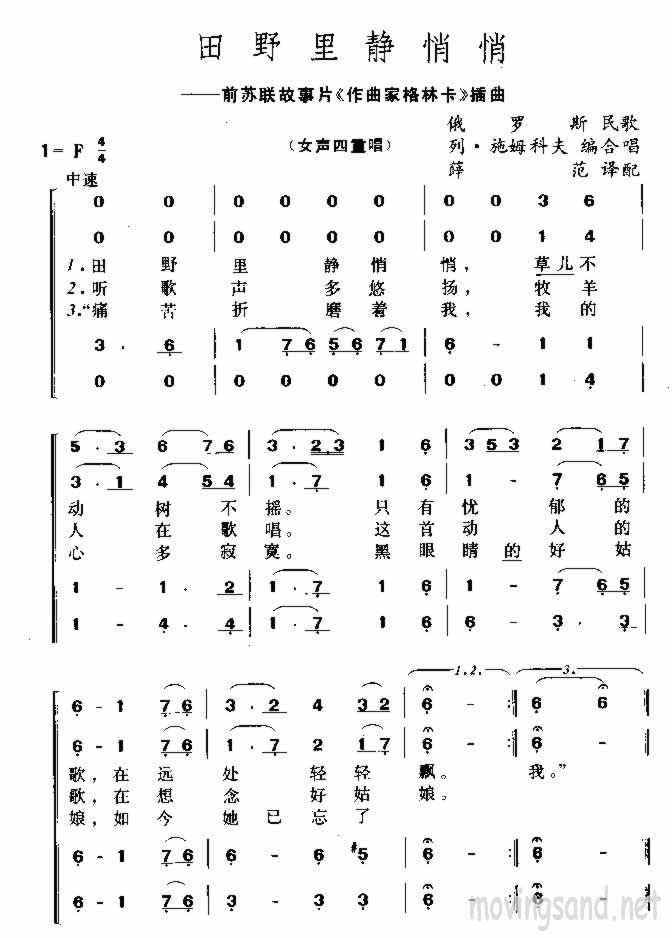 田野里静悄悄
——前苏联故事片《作曲家格林卡》插曲
俄罗斯民歌
1=F 4/4 (女声四重唱) 列·施姆科夫 编合唱
中速 薛范 译配
0 0 0 0 0 0 0 0 0 0 3 6
0 0 0 0 0 0 0 0 0 0 1 4
1.田野里静悄悄，草儿不
2.听歌声多悠扬，牧羊
3.“痛苦折磨着我，我的
3 · 6 1 7 6 5 6 7 1 6 - 1 1
0 0 0 0 0 0 0 0 0 0 1 4
5 · 3 6 7 6 3 · 2 3 1 6 3 5 3 2 1 7
3 · 1 4 5 4 1 · 7 1 6 1 - 7 6 5
动树不摇。只有忧郁的
人在歌唱。这首动人的
心多寂寞。黑眼睛的好姑
1 - 1 · 2 1 · 7 1 6 1 - 7 6 5
1 - 4 · 4 1 · 7 1 6 6 - 3 · 3
1.2. 3.
6 - 1 7 6 3 · 2 4 3 2 6 - :‖ 6 6 ‖
6 - 1 7 6 1 · 7 2 1 7 6 - :‖ 6 - ‖
歌，在远处轻轻飘。我。”
歌，在想念好姑娘。
娘，如今她已忘了
6 - 1 7 6 6 - 6 #5 6 - :‖ 6 - ‖
6 - 1 7 6 6 - 3 3 6 - :‖ 6 - ‖
movingsand.net